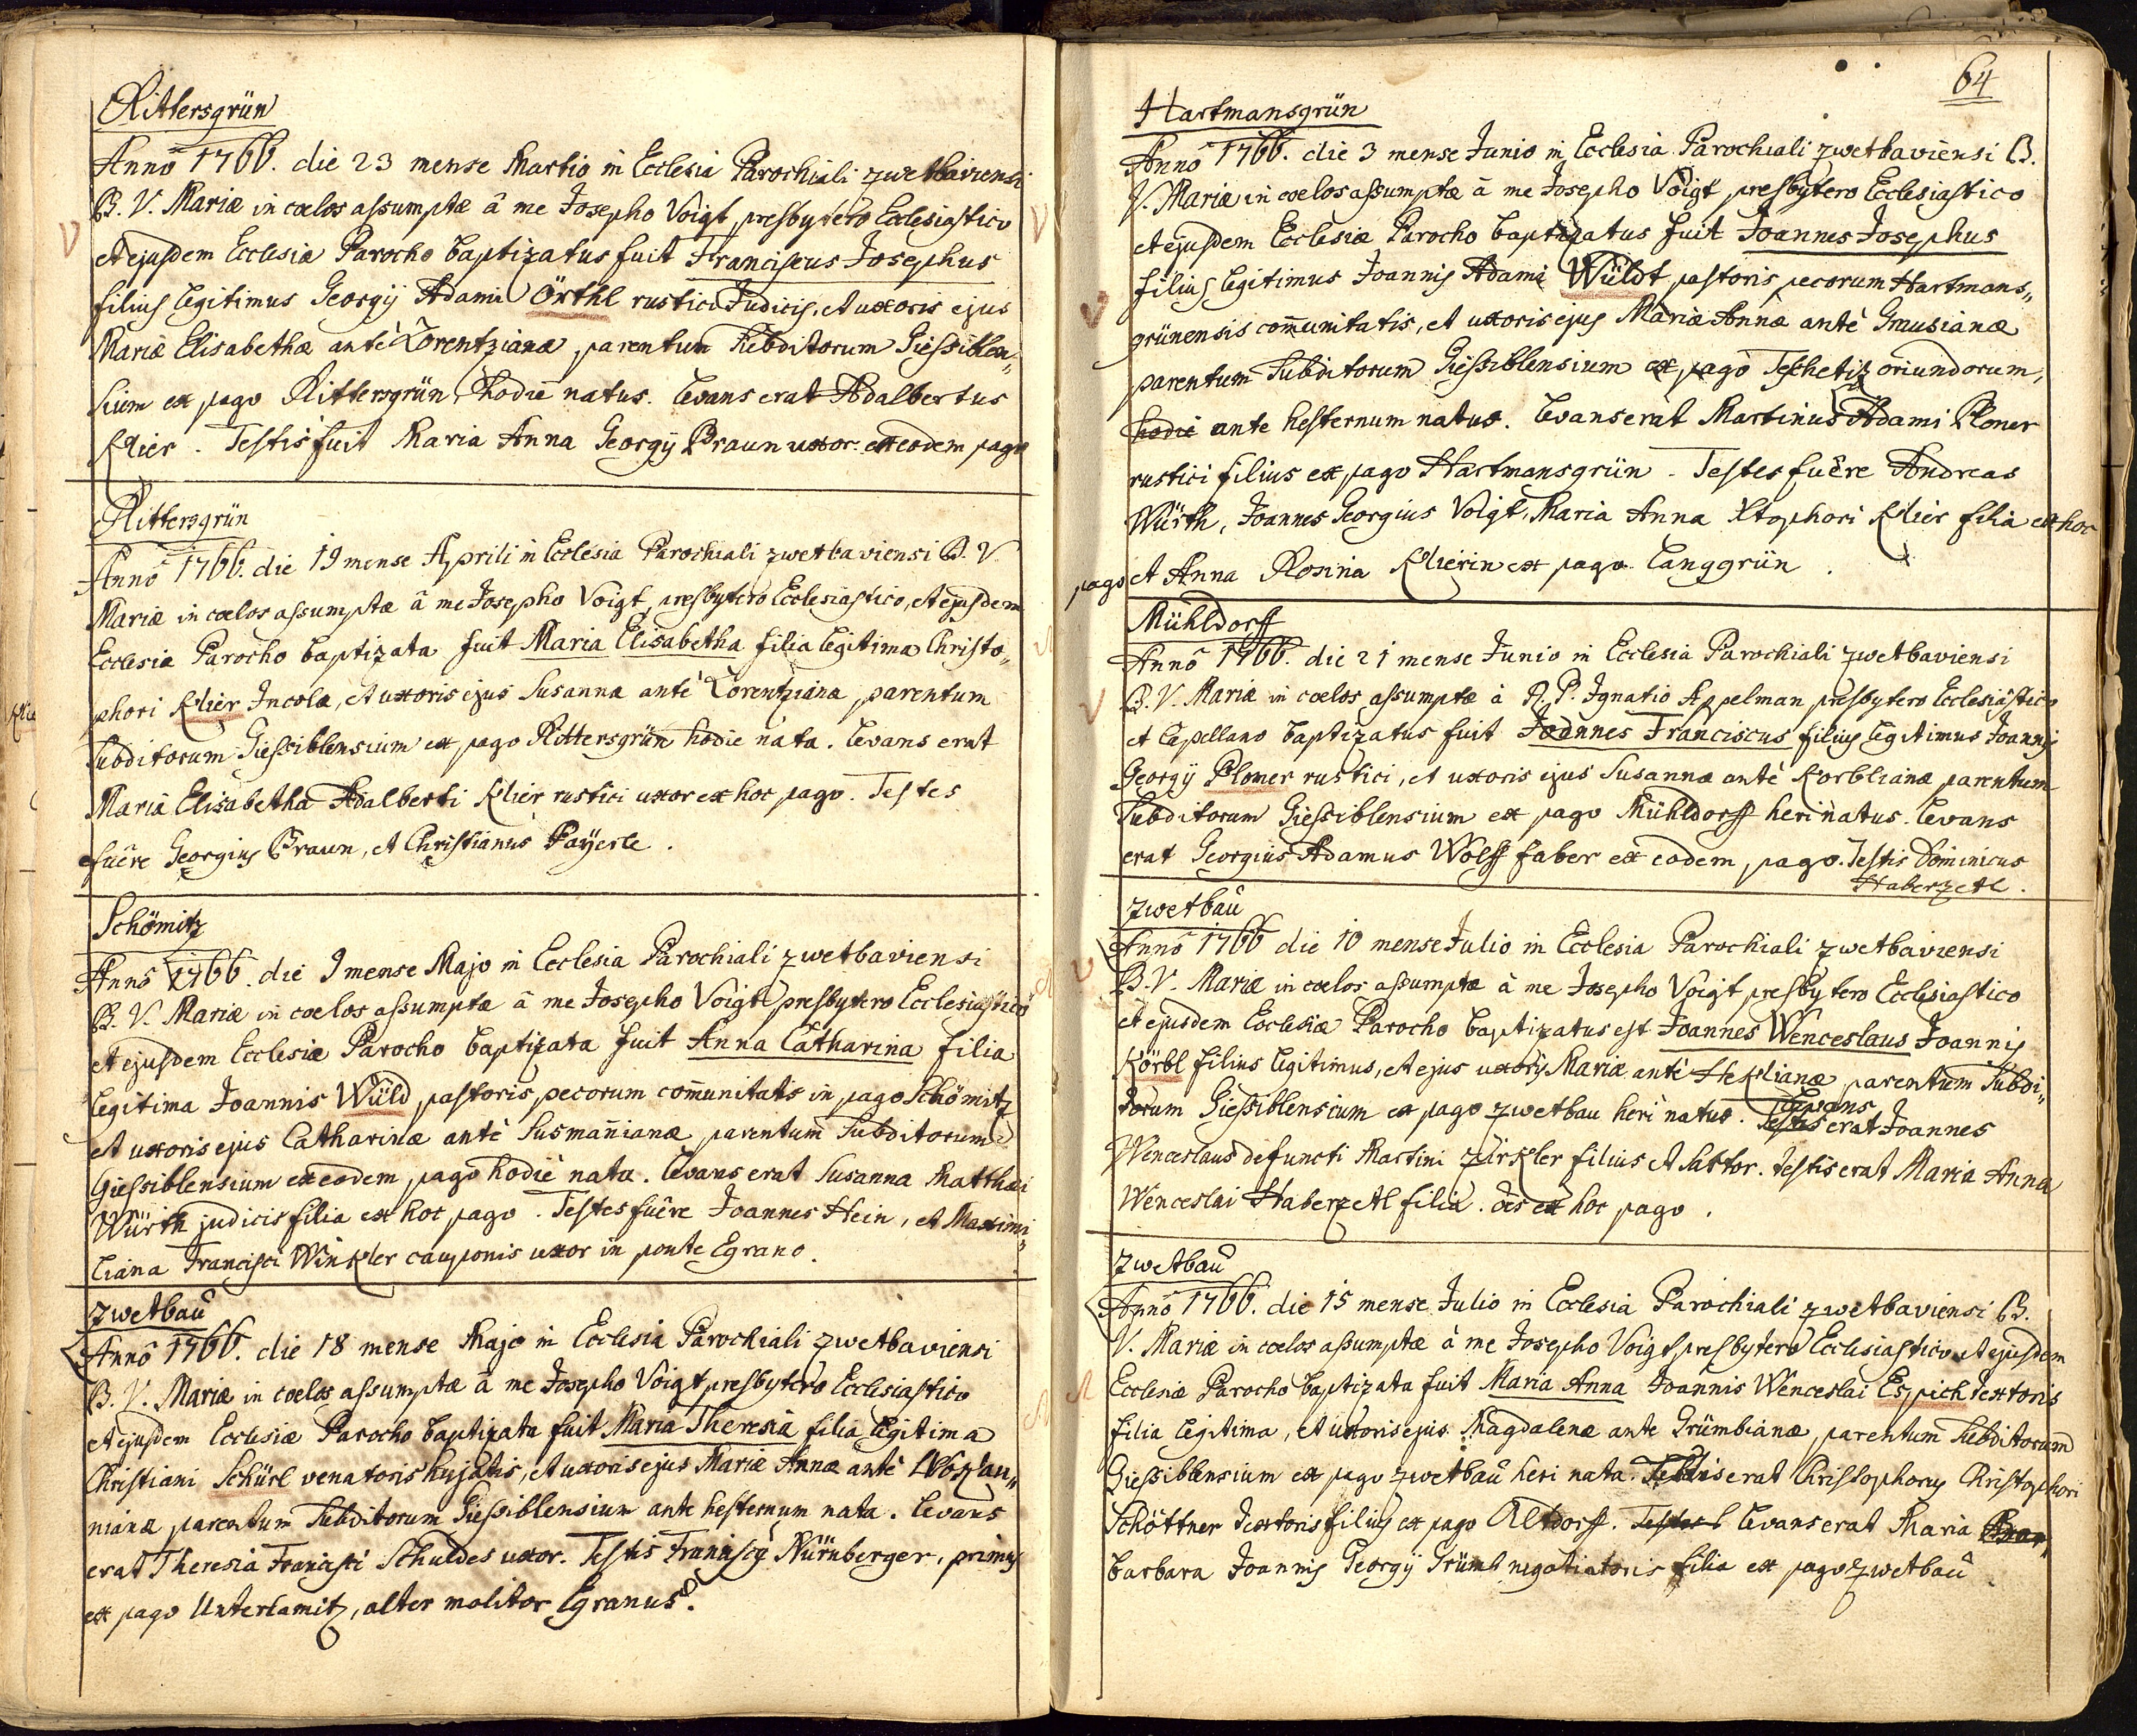 Rittersgrün
Anno 1766. die 23 mense Martio in Ecclesia Parochiali zwetbaviensi
B. V. Mariæ in cœlos assumptæ â me Josepho Voigt presbytero Ecclesiastico
et ejusdem Ecclesiæ Parocho baptizatus fuit Franciscus Josephus
filius legitimus Georgij Adami Örthl rustici Judicis, et uxoris ejus
Mariæ Elisabethæ antè Lorentzianæ, parentum Subditorum Giessiblen„
sium ex pago Rittersgrün, hodie natus. Levans erat Adalbertus
Klier. Testis fuit Maria Anna Georgij Braun uxor ex eodem pago
Rittersgrün
Anno 1766. die 19 mense Aprili in Ecclesia Parochiali zwetbaviensi B. V.
Mariæ in cœlos assumptæ â me Josepho Voigt, presbytero Ecclesiastico, et ejusdem
Ecclesiæ Parocho baptizata fuit Maria Elisabetha filia legitima Christo„
phori Klier Incolæ, et uxoris ejus Susannæ antè Lorentziana, parentum
Subditorum Giessiblensium ex pago Rittersgrün hodie nata. Levans erat
Maria Elisabetha Adalberti Klier rustici uxor ex hoc pago. Testes
fuêre Georgius Braun, et Christianus Payerle.
Schömitz
Anno 1766. die 9 mense Majo in Ecclesia Parochiali zwetbaviensi
B. V. Mariæ in cœlos assumptæ â me Josepho Voigt presbytero Ecclesiastico
et ejusdem Ecclesiæ Parocho baptizata fuit Anna Catharina filia
legitima Joannis Wüld pastoris pecorum com̄unitatis in pago Schömitz
et uxoris ejus Catharinæ antè Susman̄ianæ parentum Subditorum
Giessiblensium ex eodem pago hodie nata. Levans erat Susanna Matthæi
Würth judicis filia ex hoc pago. Testes fuêre Joannes Hein, et Maximi„
liana Francisci Winkler cauponis uxor in ponte Egrano.
Zwetbau
Anno 1766. die 18 mense Majo in Ecclesia Parochiali zwetbaviensi
B. V. Mariæ in cœlos assumptæ â me Josepho Voigt presbytero Ecclesiastico
et ejusdem Ecclesiæ Parocho baptizata fuit Maria Theresia filia legitima
Christiani Schürl venatoris hujatis, et uxoris ejus Mariæ Annæ antè
nianæ parentum Subditorum Giessiblensium ante hesternum nata. Levans
erat Theresia Francisci Schuldes uxor. Testis Nürnberger, primus
ex pago Unterlamitz, alter molitor Egranus.
64
Hartmansgrün
Anno 1766. die 3 mense Junio in Ecclesia Parochiali zwetbaviensi B.
V. Mariæ in cœlos assumptæ â me Josepho Voigt presbytero Ecclesiastico
et ejusdem Ecclesiæ Parocho baptizatus fuit Joannes Josephus
filius legitimus Joannis Adami Wüldt pastoris pecorum Hartmans„
grünensis com̄unitatis, et uxoris ejus Mariæ Annæ antè Gnusianæ
parentum Subditorum Giessiblensium ex pago Teschetiz oriundorum,
hodie ante hesternum natus. Levans erat Martinus Adami Ploner
rustici filius ex pago Hartmansgrün. Testes fuêre Andreas
Würth, Joannes Georgius Voigt, Maria Anna Xtophori Klier filia ex hoc
pago et Anna Rosina Klierin ex pago Langgrün.
Mühldorff
Anno 1766. die 21 mense Junio in Ecclesia Parochiali zwetbaviensi
B. V. Mariæ in cœlos assumptæ à R. P. Ignatio Appelman presbytero Ecclesiastico
et Capellano baptizatus fuit Joannes Franciscus filius legitimus Joannis
Georgij Ploner rustici, et uxoris ejus Susannæ antè Korblianæ parentum
Subditorum Giessiblensium ex pago Mühldorff heri natus. Levans
erat Georgius Adamus Wolff faber ex eodem pago. Testis Dominicus
Haberzetl.
Zwetbau
Anno 1766 die 10 mense Julio in Ecclesia Parochiali zwetbaviensi
B. V. Mariæ in cœlos assumptæ à me Josepho Voigt presbytero Ecclesiastico
et ejusdem Ecclesiæ Parocho baptizatus est Joannes Wenceslaus Joannis
Körbl filius legitimus, et ejus uxoris Mariæ antè Heklianæ parentum Subdi„
torum Giessiblensium ex pago zwetbau heri natus. Testis Levans erat Joannes
Wenceslaus defuncti Martini Zürkler filius et Sartor. testis erat Maria Anna
Wenceslai Haberzetl filia. oēs ex hoc pago.
Zwetbau
Anno 1766. die 15 mense Julio in Ecclesia Parochiali zwetbaviensi B.
V. Mariæ in cœlos assumptæ à me Josepho Voigt presbytero Ecclesiastico et ejusdem
Ecclesiæ Parocho baptizata fuit Maria Anna Joannis Wenceslai Espich textoris
filia legitima, et uxoris ejus Magdalenæ ante Grümbianæ, parentum Subditorum
Giessiblensium ex pago zwetbau heri nata. Testis erat Christophorus Christophori
Schöttner textoris filius ex pago Altdorff. Testes Levans erat Maria
barbara Joannis Georgij Grümb negotiatoris filia ex pago Zwetbau